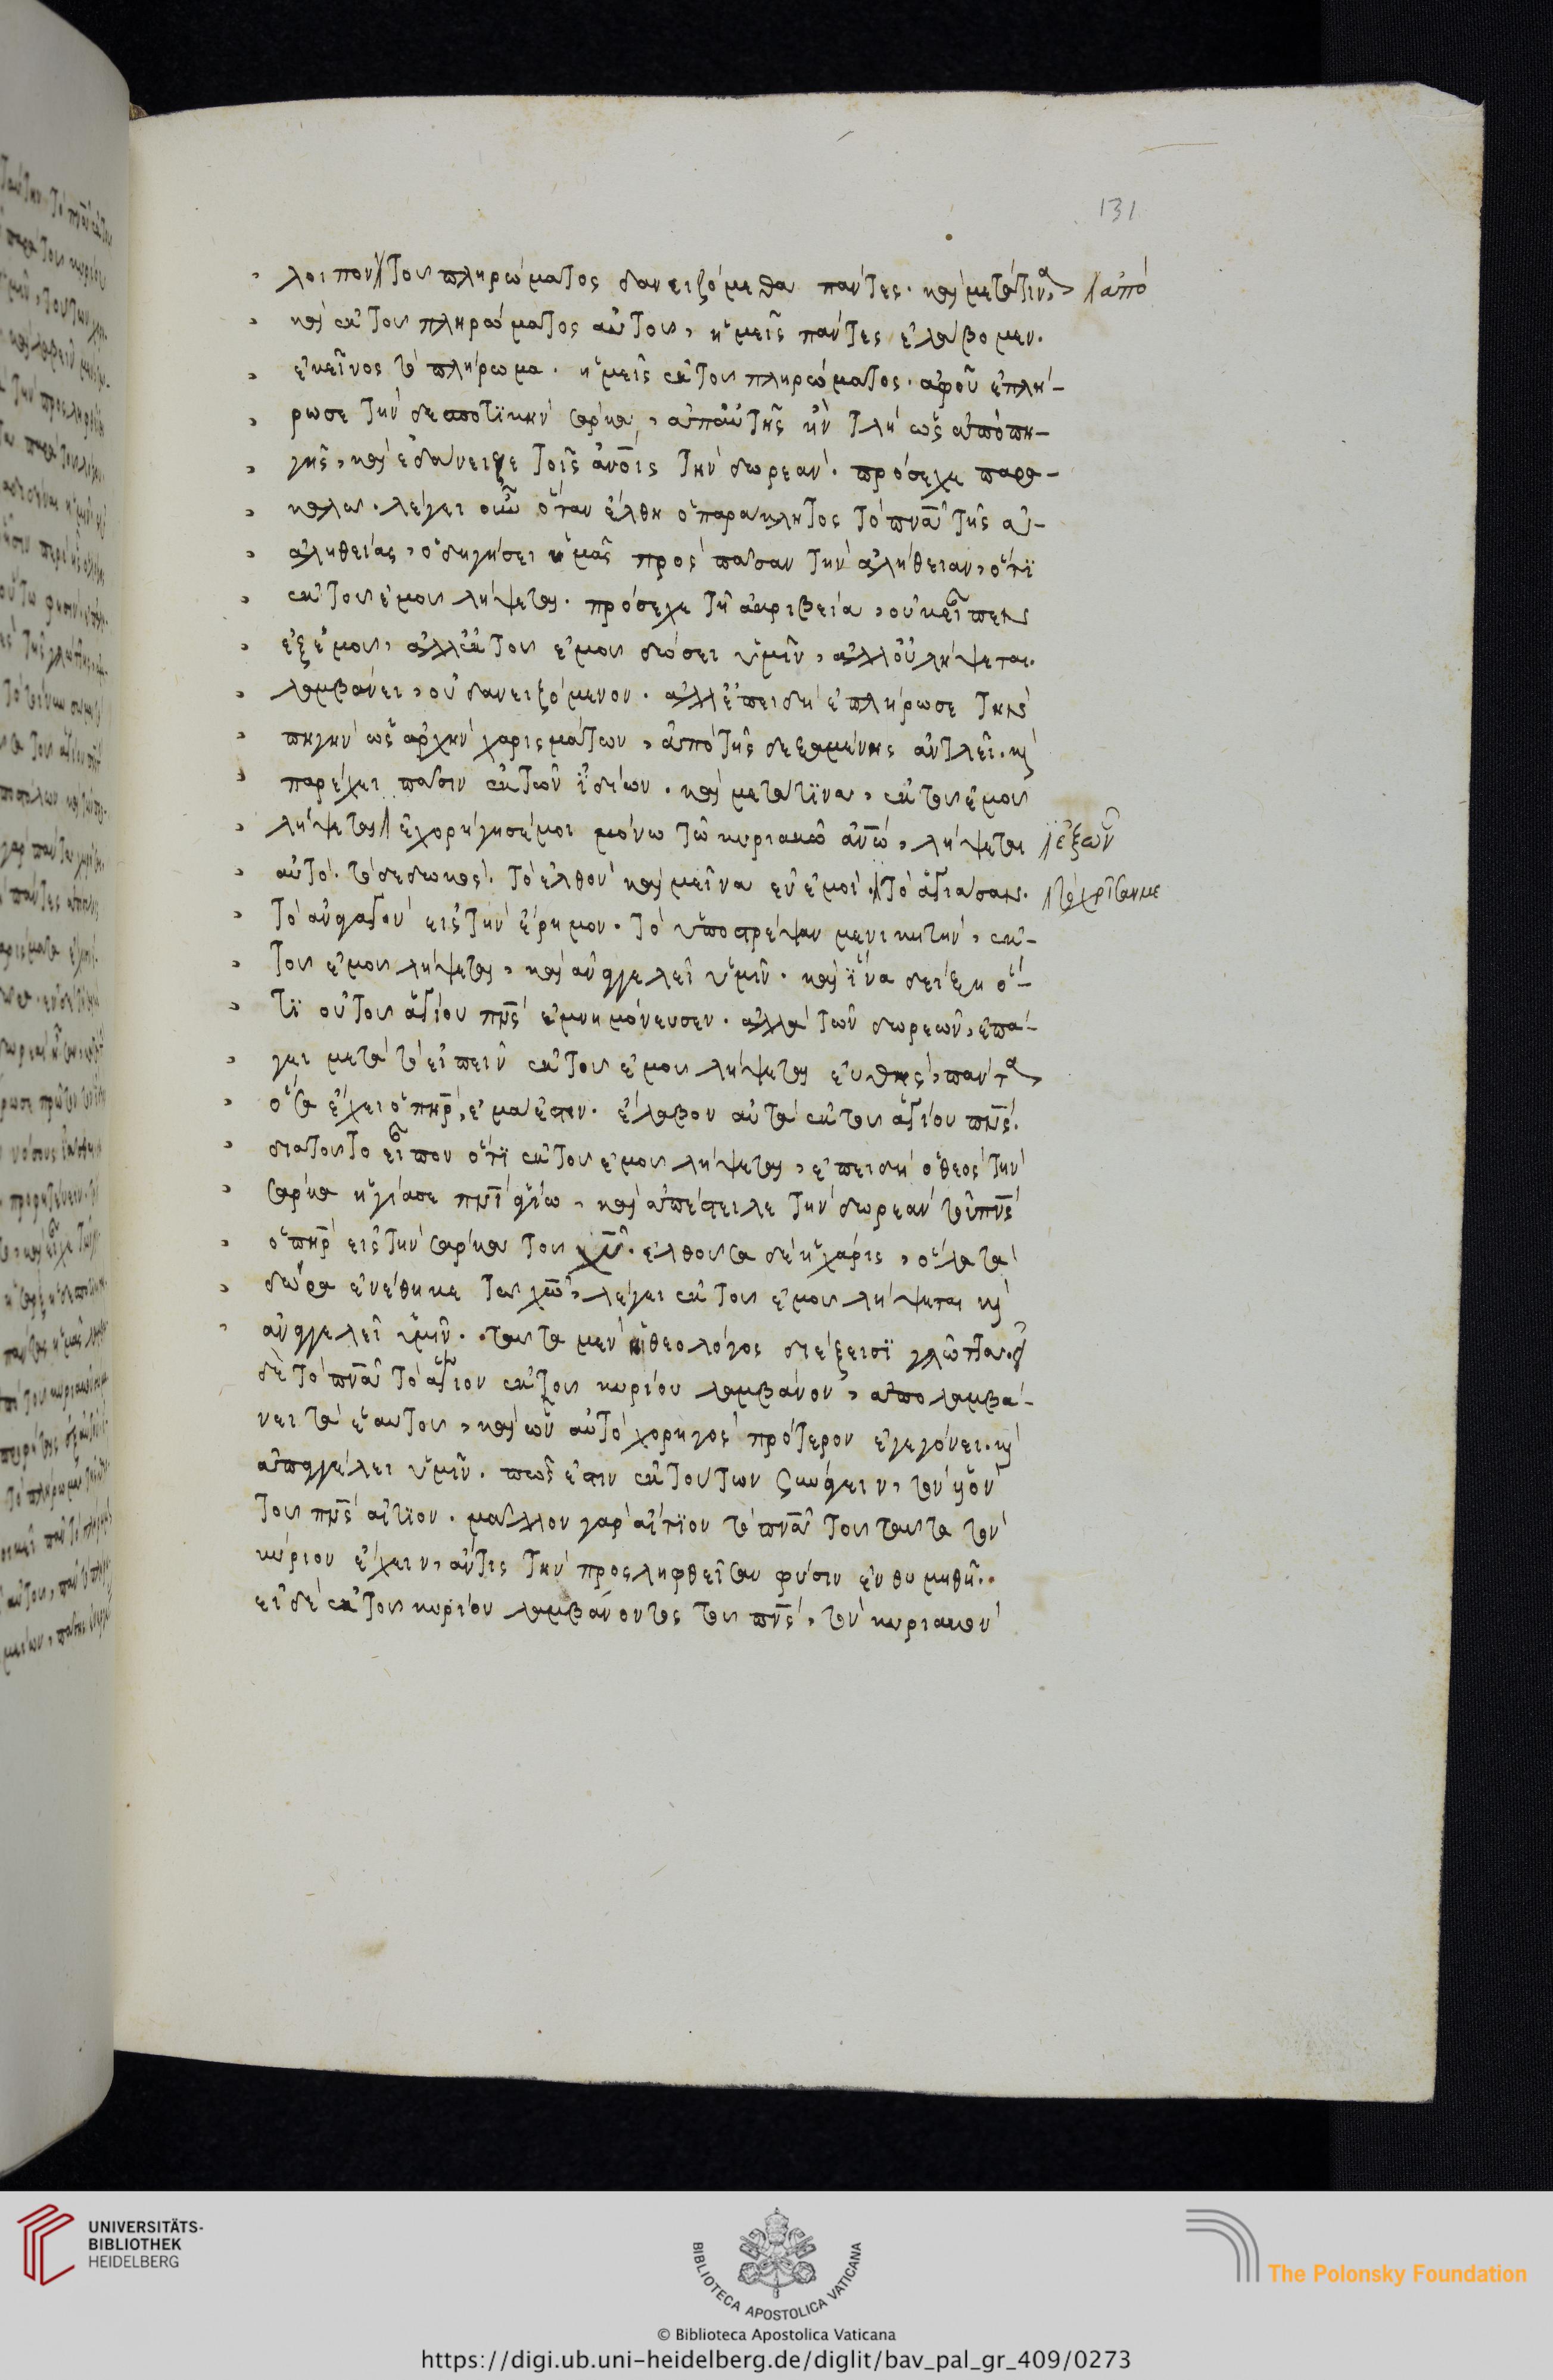 131
λοιπον // τοῦ πληρώματος δανειζόμεθα πάντες. καὶ μετάτινα // ἀπὸ
καὶ ἐκ τοῦ πληρώματος αὐτοῦ, ἡμεῖς πάντες ἐλάβομεν.
ἐκεῖνος τὸ πλήρωμα. ἡμεῖς ἐκ τοῦ πληρώματος. ἀφοῦ ἐπλή-
ρωσε τὴν δεσποτϊκὴν σάρκα, ἀπαὐτῆς ἦν τλῆ ὡς ἀπὸ πη-
γῆς, καὶ ἐδάνειζε τοῖς ἀνοῖς τὴν δωρεάν. πρόσεχε παρα-
καλῶ. λέγει οὖν ὅταν ἔλθη ὁ παράκλητος τὸ πνᾶ τῆς ἀ-
αληθείας, ὁδηγήσει ὑμᾶς πρὸς πᾶσαν τὴν ἀλήθειαν, ὅτϊ
ἐκ τοῦ ἐμοῦ λήψεται. πρόσεχε τῆ ἀκριβεία, οὐκ εἶπεν
ἐξ ἐμοῦ, ἀλλ' ἐκ τοῦ ἐμοῦ δώσει ὑμῖν, ἀλλ' οὐ λήψεται.
λαμβάνει, οὐ δανειζόμενον. ἀλλ' ἐπειδὴ ἐπλήρωσε τὴν
πηγὴν ὡς ἀρχὴν χαρισμάτων, ἀπὸ τῆς δεξαμένης ἀντλεῖ. καὶ
παρέχει πᾶσιν ἐκ τῶν ἰδίων. καὶ μετάτϊνα, ἐκ τοῦ ἐμοῦ
λήψεται // ἐχορήγησέ μοι μόνω τῶ κυριακῶ ἀνῶ, λήψεται // ἐξ ὧν
αὐτὸ τὸ δεδωκός. τὸ ἐλθὸν καὶ μεῖναν ἐν ἐμοί. // τὸ ἁγιάσαν. // τὸ χρῖσαν με
τὸ ἀναγαγὸν εἰς τὴν ἔρημον. τὸ ὑποστρέψαν με νικητὴν, ἐκ
τοῦ ἐμοῦ λήψεται, καὶ ἀναγγελεῖ ὑμῖν. καὶ ἵνα δείξη ὅ-
τϊ οὐ τοῦ ἁγίου πνς ἐμνημόνευσεν. ἀλλὰ τῶν δωρεῶν, ἐπά-
γει μετὰ τὸ εἰπεῖν ἐκ τοῦ ἐμοῦ λήψεται εὐθὺς, πάντα
ὅσα ἔχει ὁ πηρ, ἐμά ἐστιν. ἔλαβον αὐτὰ ἐκ τοῦ ἁγίου πνς.
διατοῦτο εἶπον ὅτϊ ἐκ τοῦ ἐμοῦ λήψεται, ἐπειδὴ ὁ θεὸς τὴν
σάρκα ἡγίασε πνι ἁγίω, καὶ ἀπέστειλε τὴν δωρεὰν τοῦ πνς
ὁ πηρ εἰς τὴν σάρκα τοῦ χυ. ἐλθοῦσα δὲ ἡ χάρις, ὅλα τὰ
δῶρα ἐνέθηκε τῶ χω, λέγει ἐκ τοῦ ἐμοῦ λήψεται καὶ
ἀναγγελεῖ ὑμῖν. ταῦτα μὲν ἡ θεολόγος διέξεισϊ γλῶττα.
δὲ τὸ πνᾶ τὸ ἅγιον ἐκ τοῦ κυρίου λαμβάνον, ἀπολαμβά-
νει τὰ ἑαυτοῦ, καὶ ὧν αὐτὸ χορηγὸς πρότερον ἐγεγόνει. καὶ
ἀπαγγέλει ὑμῖν. πῶς ἐστιν ἐκ τούτων συνάγειν, τὸν υἱὸν
τοῦ πνς αἴτϊον. μᾶλλον γὰρ αἴτϊον τὸ πνᾶ τοῦ ταῦτα τὸν
κύριον ἔχειν, ἄν τις τὴν προσληφθεῖσαν φύσιν ἐνθυμηθῆ.
εἰ δὲ ἐκ τοῦ κυρίου λαμβάνοντος τοῦ πνς, τὸν κυριακὸν
UNIVERSITÄTS-
BIBLIOTHEK
HEIDELBERG
BIBLIOTECA APOSTOLICA VATICANA
The Polonsky Foundation
© Biblioteca Apostolica Vaticana
https://digi.ub.uni-heidelberg.de/diglit/bav_pal_gr_409/0273